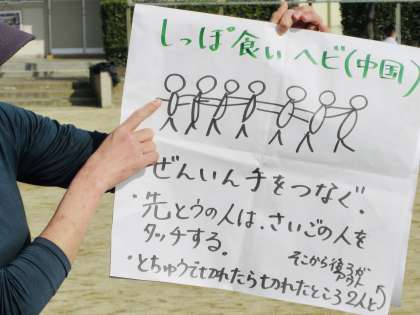 しっぽ食いヘビ(中国)
ぜんいん手をつなぐ.
・先とうの人は、さいごの人を
タッチする.
・とちゅうで切れたら切れたところ2人と
そこから後ろが
アウト